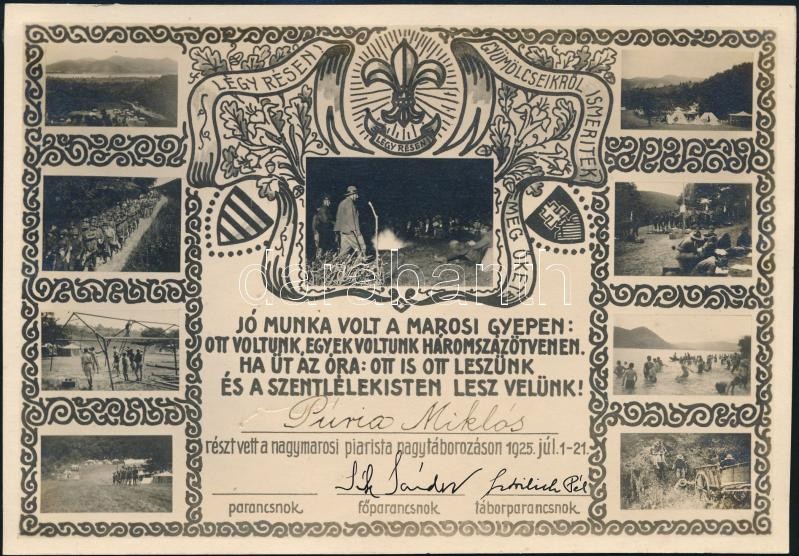 LÉGY RÉSEN!
GYÜMÖLCSEIKRŐL ISMERITEK
MEG ŐKET
LÉGY RÉSEN!
darabanth.com
JÓ MUNKA VOLT A MAROSI GYEPEN:
OTT VOLTUNK, EGYEK VOLTUNK HÁROMSZÁZÖTVENEN.
HA ÜT AZ ÓRA: OTT IS OTT LESZÜNK
ÉS A SZENTLÉLEKISTEN LESZ VELÜNK!
Púria Miklós
részt vett a nagymarosi piarista nagytáborozáson 1925. júl. 1-21.
Sík Sándor Pál
parancsnok főparancsnok táborparancsnok